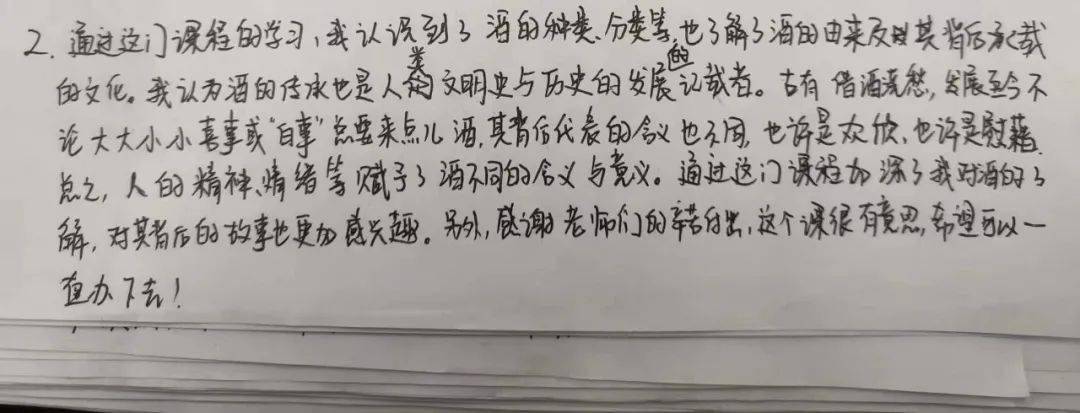 2. 通过这门课程的学习，我认识到了酒的种类、分类等，也了解了酒的由来及其背后承载
的文化。我认为酒的传承也是人类文明史与历史的发展的记载者。古有借酒浇愁，发展至今不
论大大小小喜事或“白事”总要来点儿酒，其背后代表的含义也不同，也许是欢欣、也许是慰藉。
总之，人的精神、情绪等赋予了酒不同的含义与意义。通过这门课程加深了我对酒的了
解，对其背后的故事也更加感兴趣。另外，感谢老师们的辛苦付出，这个课很有意思，希望可以一
直办下去！